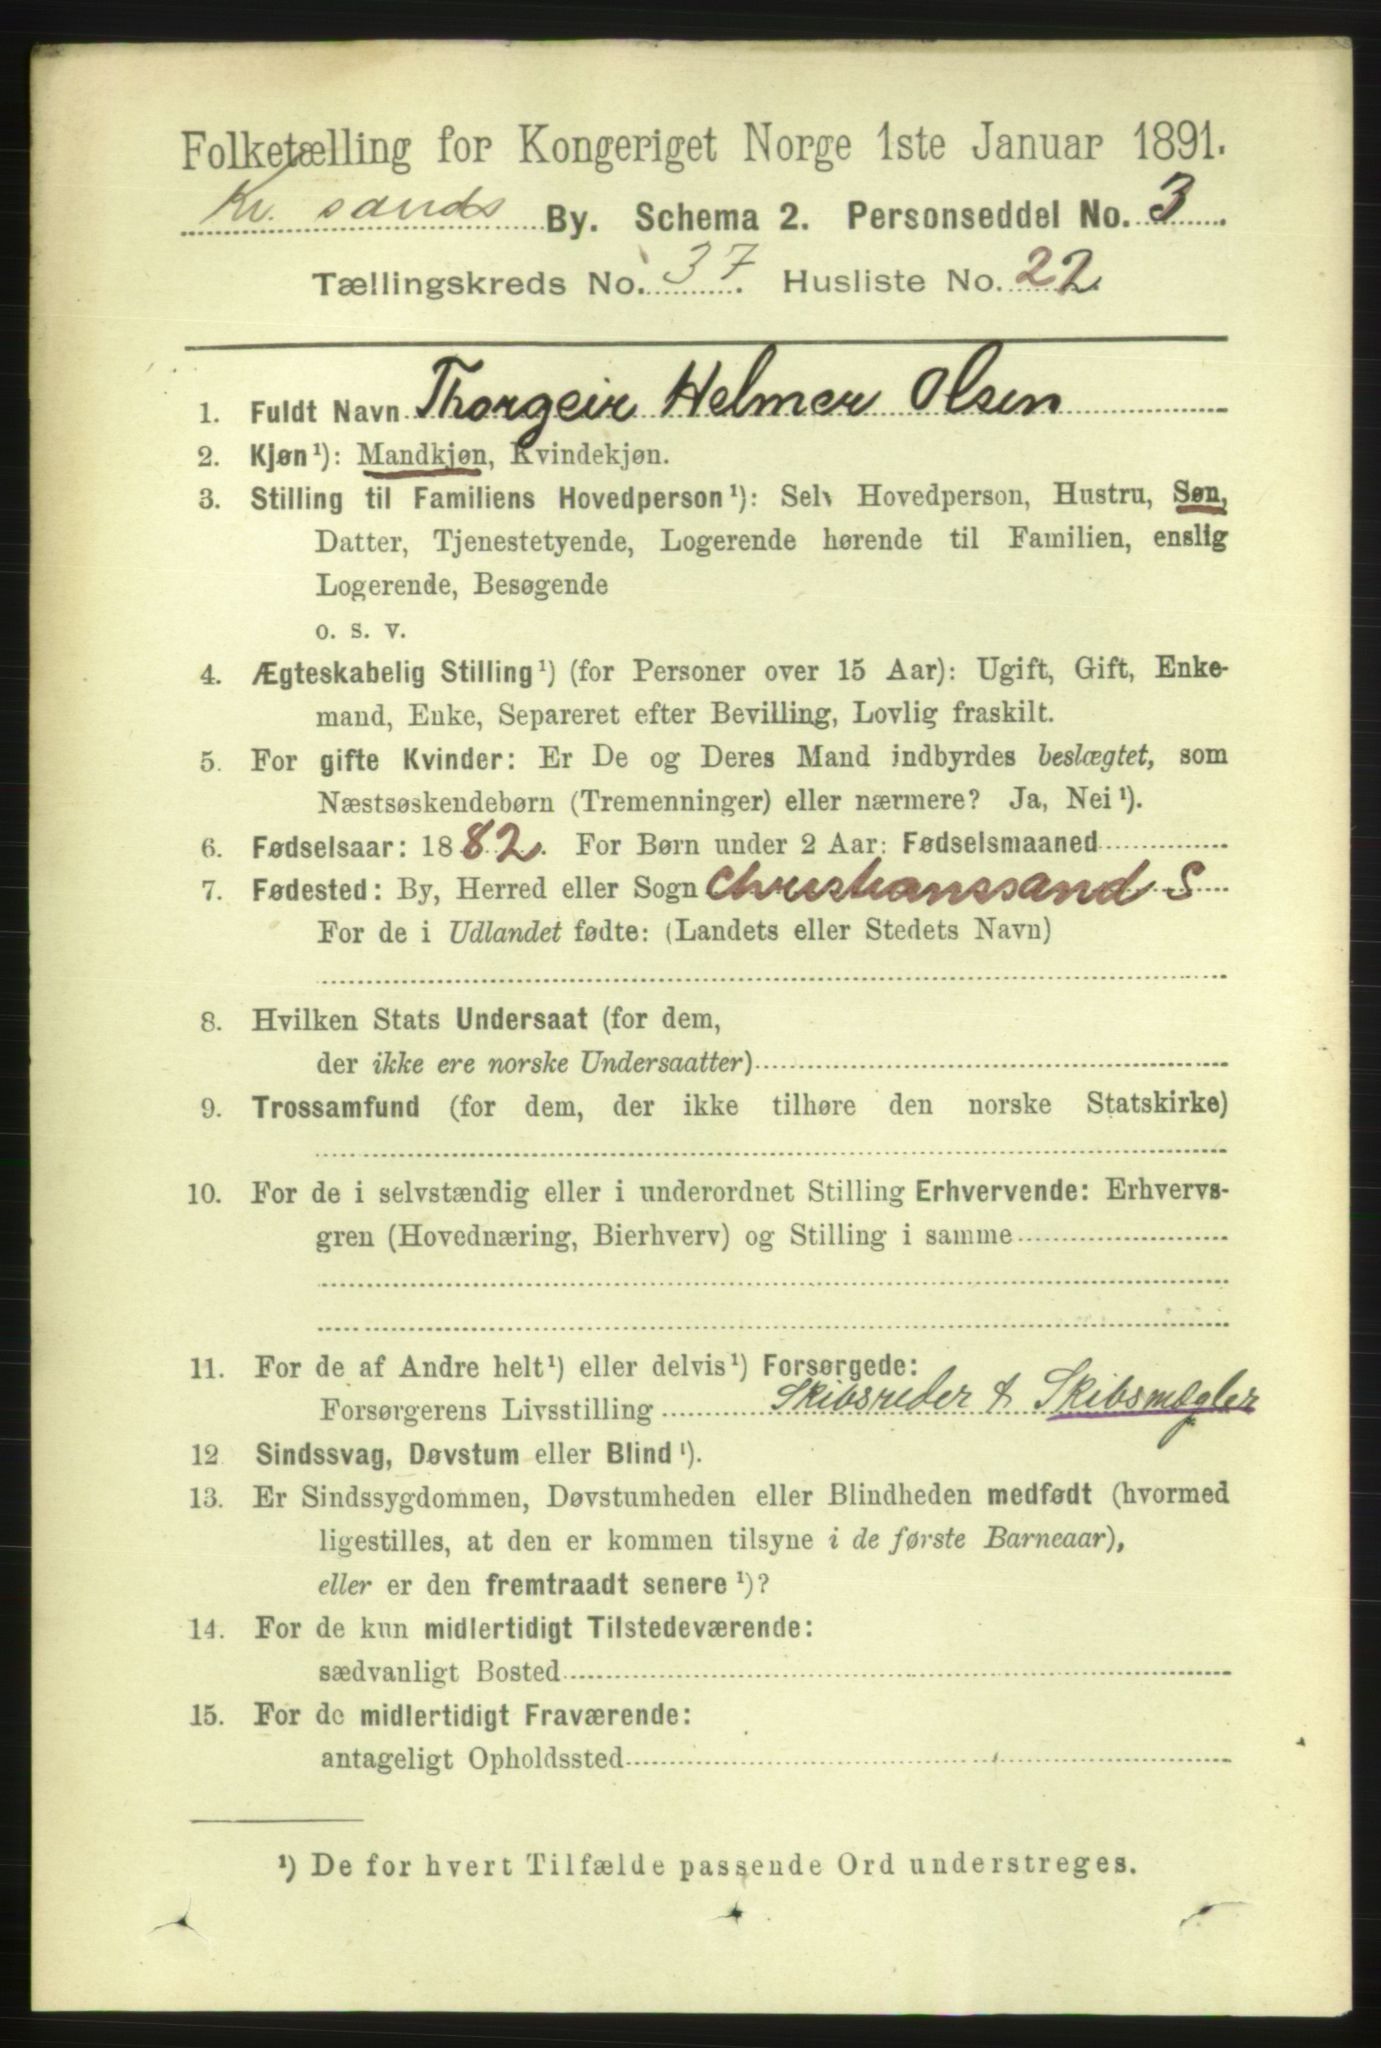 Folketælling for Kongeriget Norge 1ste Januar 1891.
Kr. sands By. Schema 2. Personseddel No. 3
Tællingskreds No. 37. Husliste No. 22
1. Fuldt Navn Thorgeir Helmer Olsen
2. Kjøn¹): Mandkjøn, Kvindekjøn.
3. Stilling til Familiens Hovedperson¹): Selv Hovedperson, Hustru, Søn,
Datter, Tjenestetyende, Logerende hørende til Familien, enslig
Logerende, Besøgende
o. s. v.
4. Ægteskabelig Stilling¹) (for Personer over 15 Aar): Ugift, Gift, Enke-
mand, Enke, Separeret efter Bevilling, Lovlig fraskilt.
5. For gifte Kvinder: Er De og Deres Mand indbyrdes beslægtet, som
Næstsøskendebørn (Tremenninger) eller nærmere? Ja, Nei¹).
6. Fødselsaar: 1882. For Børn under 2 Aar: Fødselsmaaned
7. Fødested: By, Herred eller Sogn Christianssand S
For de i Udlandet fødte: (Landets eller Stedets Navn)
8. Hvilken Stats Undersaat (for dem,
der ikke ere norske Undersaatter)
9. Trossamfund (for dem, der ikke tilhøre den norske Statskirke)
10. For de i selvstændig eller i underordnet Stilling Erhvervende: Erhvervs-
gren (Hovednæring, Bierhverv) og Stilling i samme
11. For de af Andre helt¹) eller delvis¹) Forsørgede:
Forsørgerens Livsstilling Skibsreder & Skibsmægler
12 Sindssvag, Døvstum eller Blind¹).
13. Er Sindssygdommen, Døvstumheden eller Blindheden medfødt (hvormed
ligestilles, at den er kommen tilsyne i de første Barneaar),
eller er den fremtraadt senere¹)?
14. For de kun midlertidigt Tilstedeværende:
sædvanligt Bosted
15. For de midlertidigt Fraværende:
antageligt Opholdssted
¹) De for hvert Tilfælde passende Ord understreges.